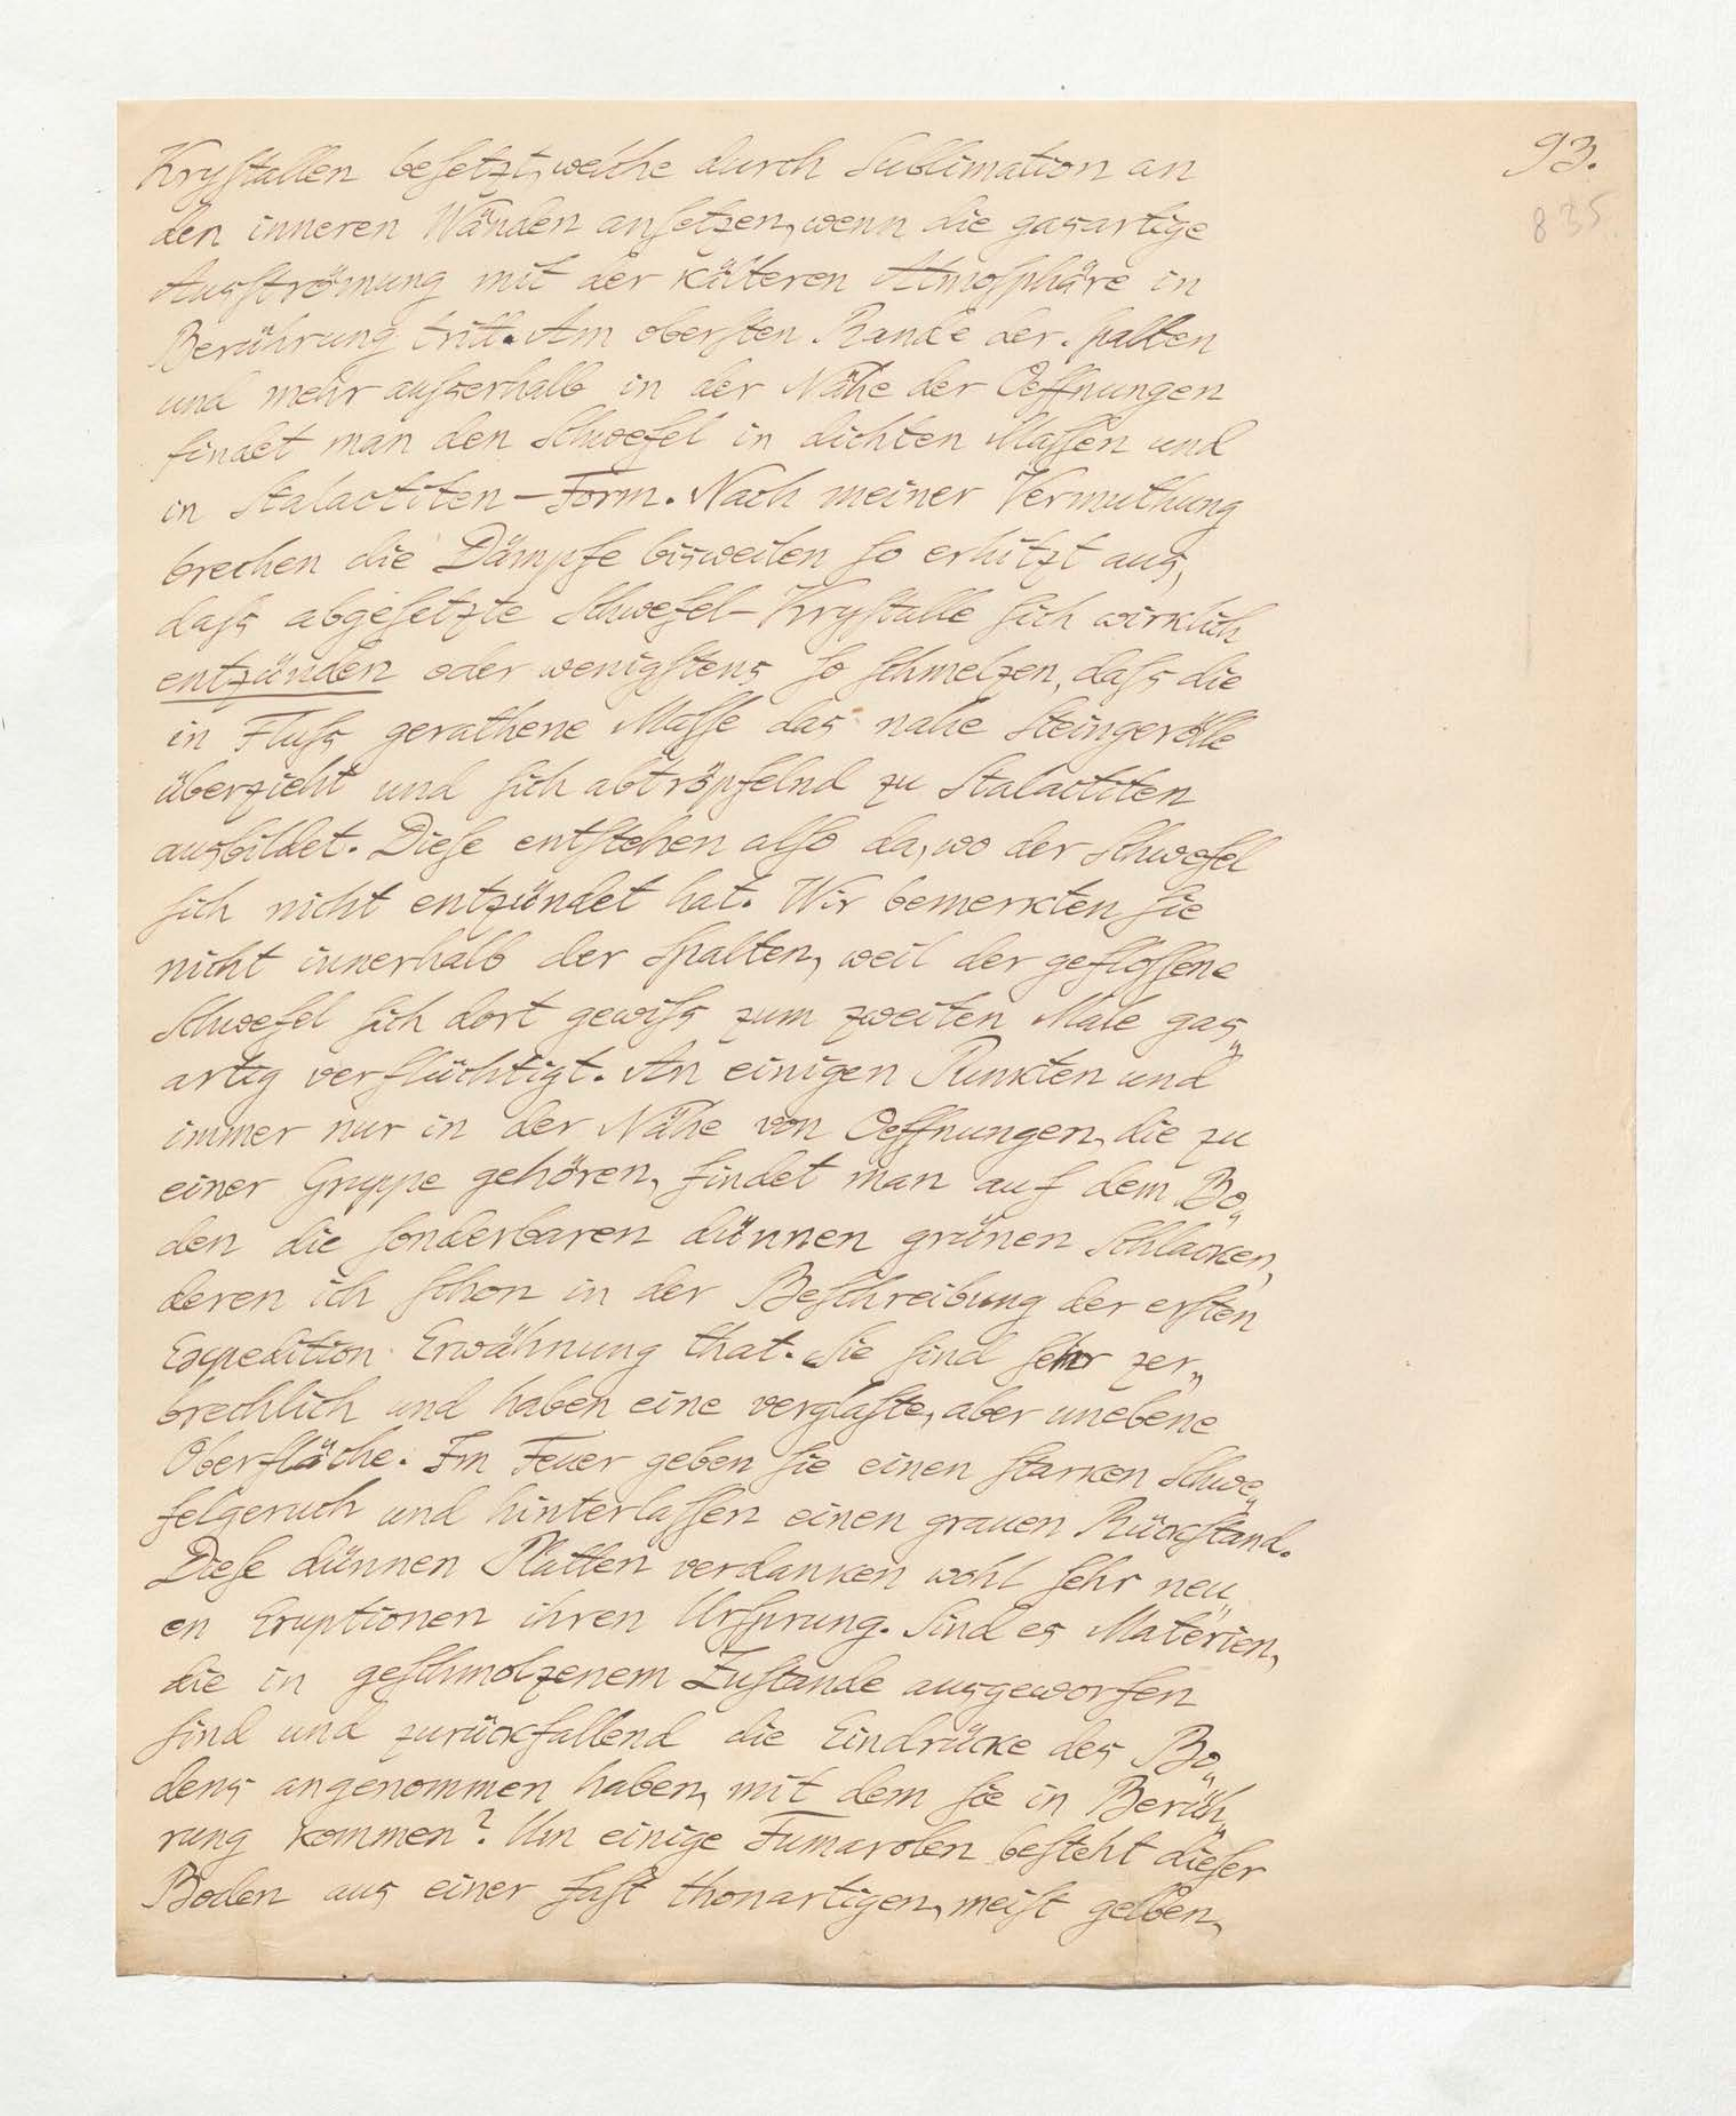 93.
835.
Krystallen besetzt, welche durch Sublimation an
den inneren Wänden ansetzen, wenn die gasartige
Ausströmung mit der kälteren Atmosphäre in
Berührung tritt. Am obersten Rande der Spalten
und mehr ausserhalb in der Nähe der Oeffnungen
findet man den Schwefel in dichten Massen und
in Stalactiten-Form. Nach meiner Vermuthung
brechen die Dämpfe bisweilen so erhitzt aus,
dass abgesetzte Schwefel-Krystalle sich wirklich
entzünden oder wenigstens so schmelzen, dass die
in Fluss gerathene Masse das nahe Steingerölle
überzieht und sich abtröpfelnd zu Stalactiten
ausbildet. Diese entstehen also da, wo der Schwefel
sich nicht entzündet hat. Wir bemerkten sie
nicht innerhalb der Spalten, weil der geflossene
Schwefel sich dort gewiss zum zweiten Male gas„
artig verflüchtigt. An einigen Punkten und
immer nur in der Nähe von Oeffnungen, die zu
einer Gruppe gehören, findet man auf dem Bo„
den die sonderbaren dünnen grünen Schlacken,
deren ich schon in der Beschreibung der ersten
Expedition Erwähnung that. Sie sind sehr zer„
brechlich und haben eine verglaste, aber unebene
Oberfläche. Im Feuer geben sie einen starken Schwe„
felgeruch und hinterlassen einen grauen Rückstand.
Diese dünnen Platten verdanken wohl sehr neu„
en Eruptionen ihren Ursprung. Sind es Materien,
die in geschmolzenem Zustande ausgeworfen
sind und zurückfallend die Eindrücke des Bo„
dens angenommen haben, mit dem sie in Berüh„
rung kommen? Um einige Fumarolen besteht dieser
Boden aus einer fast thonartigen, meist gelben,